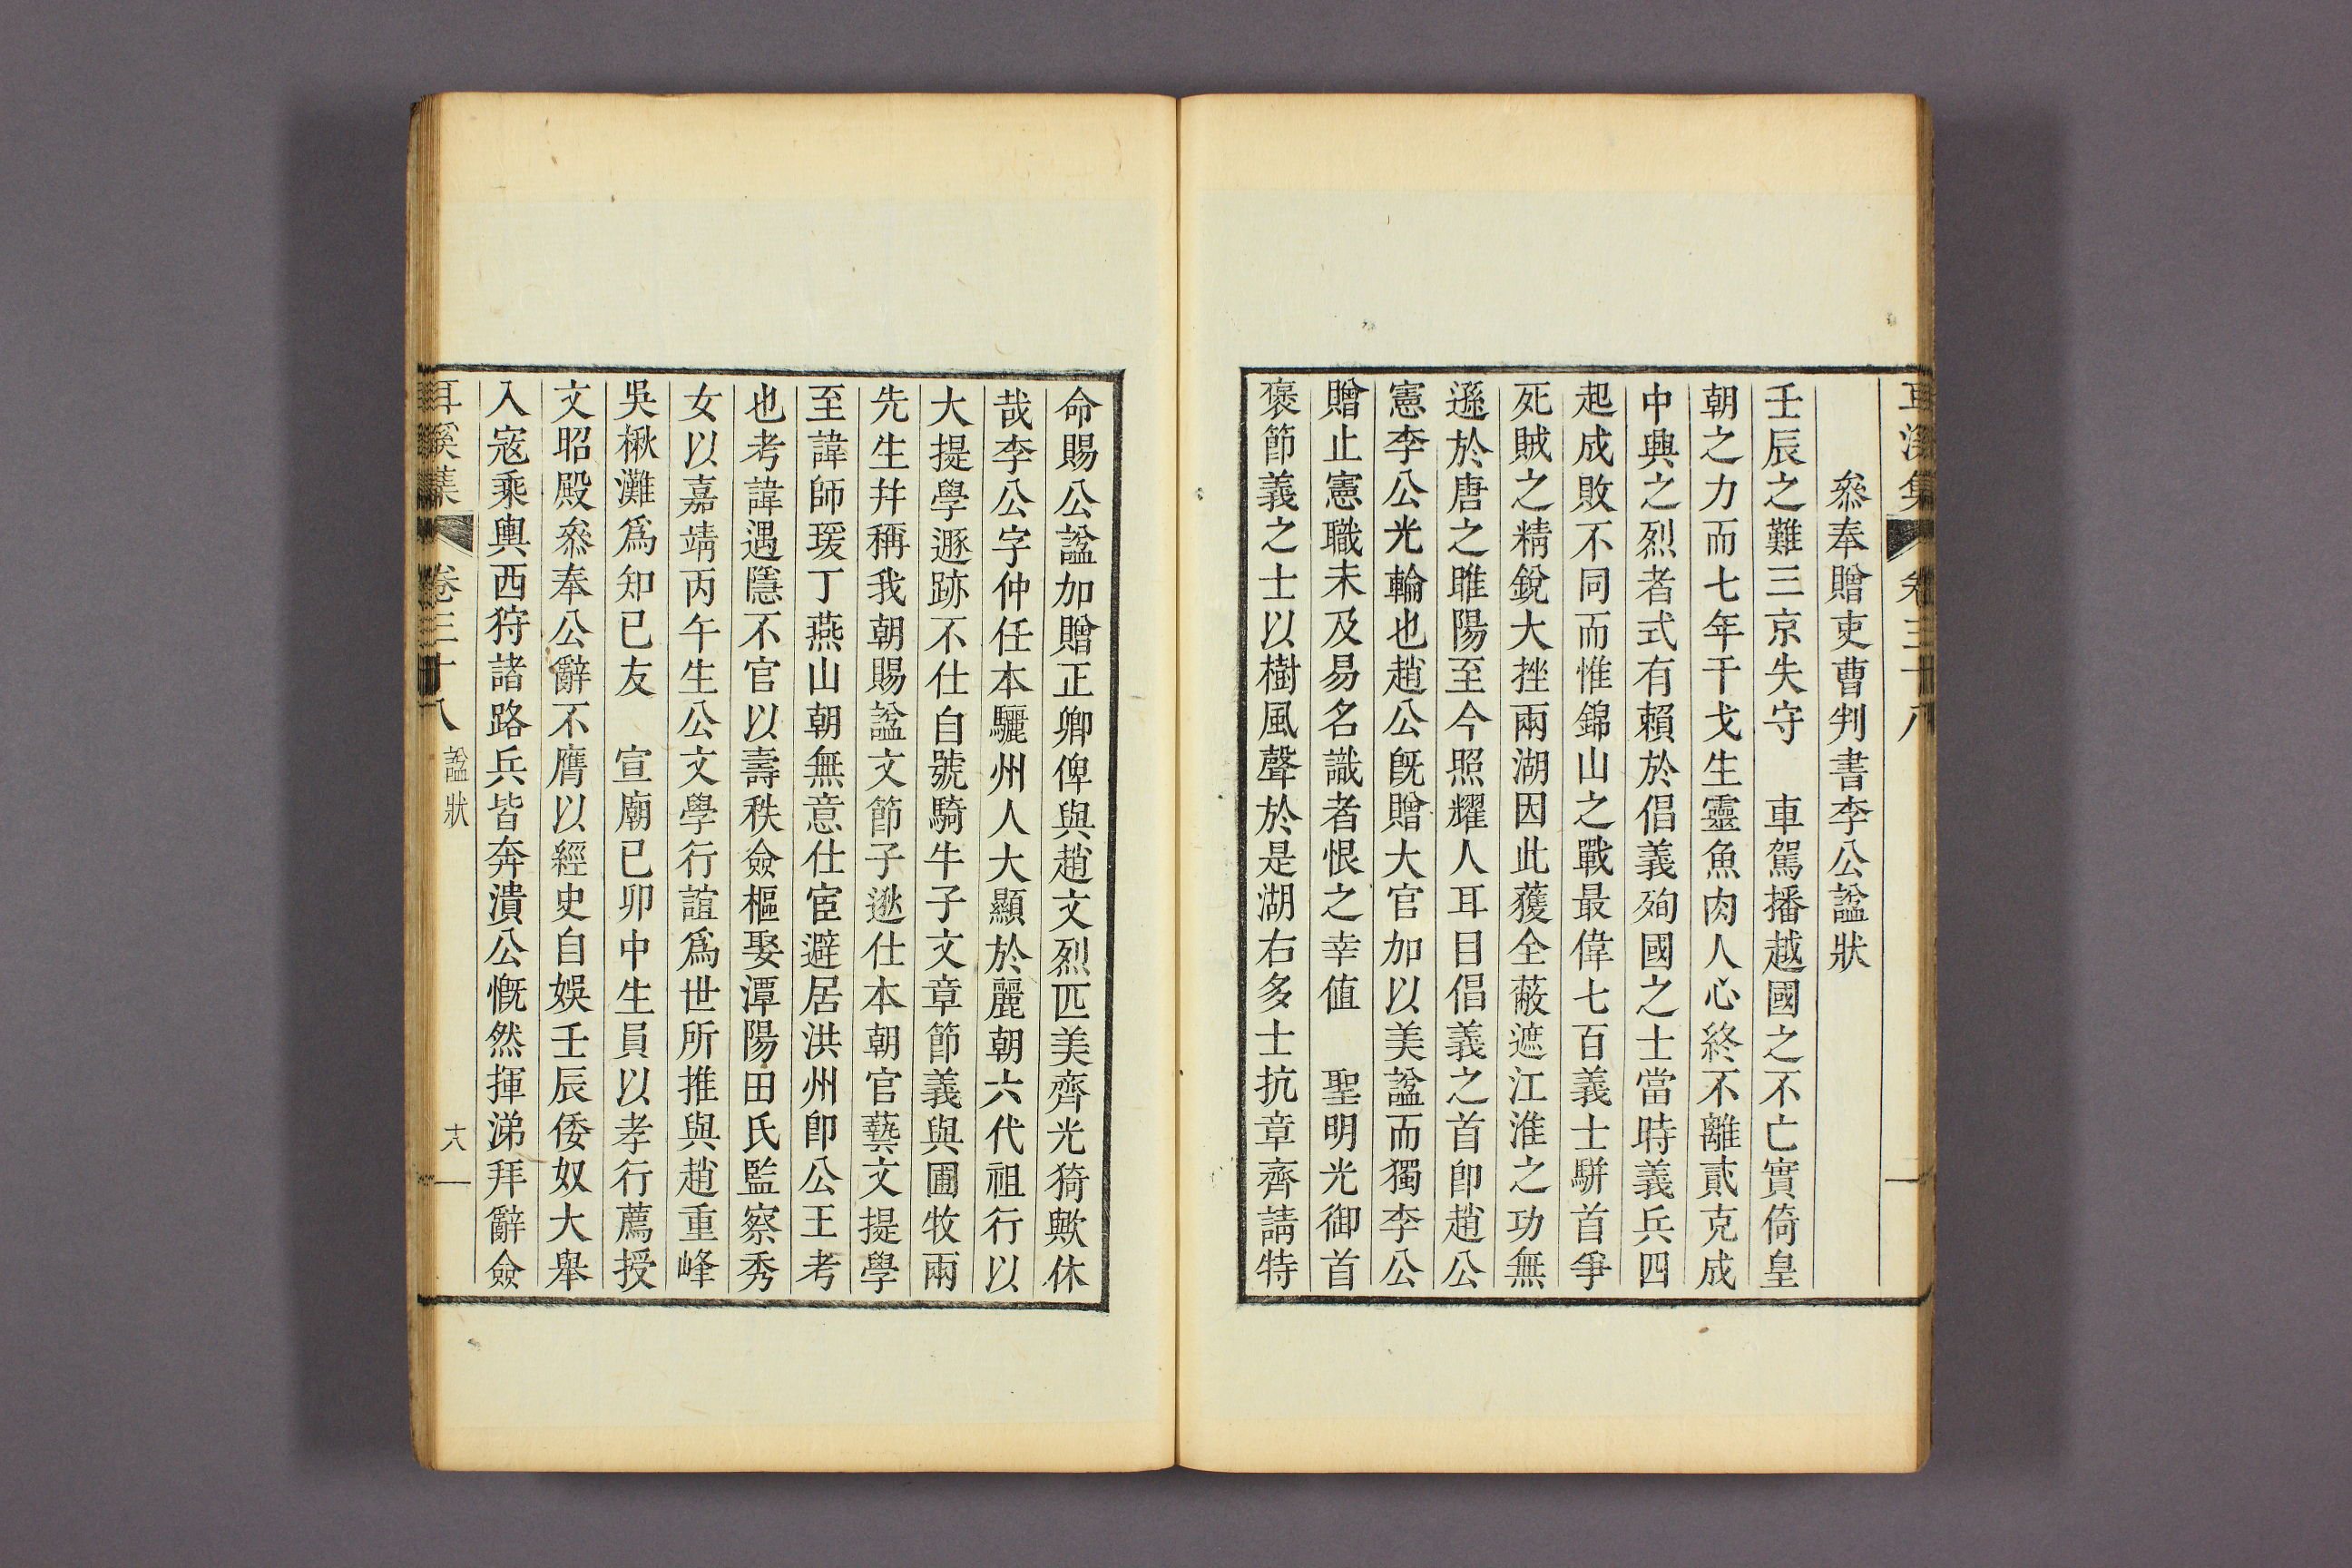 耳溪集 卷三十八
叅奉贈吏曹判書李公諡狀
壬辰之難三京失守 車駕播越國之不亡實倚皇
朝之力而七年干戈生靈魚肉人心終不離貳克成
中興之烈者式有賴於倡義殉國之士當時義兵四
起成敗不同而惟錦山之戰最偉七百義士騈首爭
死賊之精銳大挫兩湖因此獲全蔽遮江淮之功無
遜於唐之睢陽至今照耀人耳目倡義之首卽趙公
憲李公光輪也趙公旣贈大官加以美諡而獨李公
贈止憲職未及易名識者恨之幸値 聖明光御首
褒節義之士以樹風聲於是湖右多士抗章齊請特
命賜公諡加贈正卿俾與趙文烈匹美齊光猗歟休
哉李公字仲任本驪州人大顯於麗朝六代祖行以
大提學遯跡不仕自號騎牛子文章節義與圃牧兩
先生幷稱我朝賜諡文節子逖仕本朝官藝文提學
至諱師瑗丁燕山朝無意仕宦避居洪州卽公王考
也考諱遇隱不官以壽秩僉樞娶潭陽田氏監察秀
女以嘉靖丙午生公文學行誼爲世所推與趙重峰
吳楸灘爲知已友 宣廟已卯中生員以孝行薦授
文昭殿叅奉公辭不膺以經史自娛壬辰倭奴大舉
入寇乘輿西狩諸路兵皆奔潰公慨然揮涕拜辭僉
耳溪集 卷三十八 諡狀 十八